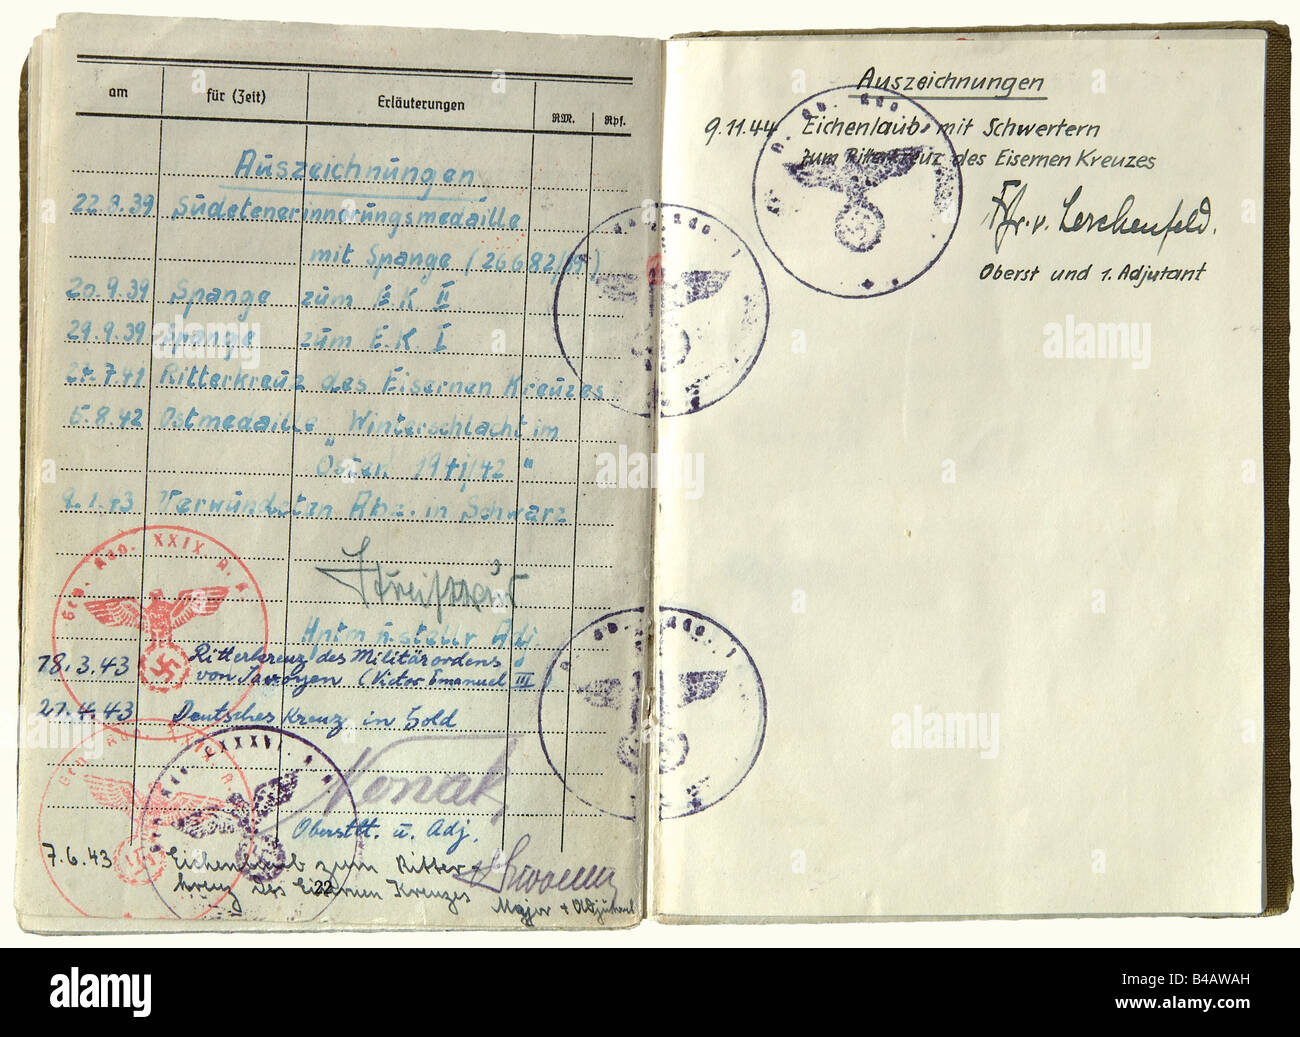 am für (Zeit) Erläuterungen RM. Rpf.
Auszeichnungen
22.8.39 Sudetenerinnerungsmedaille
mit Spange (26682/15)
20.9.39 Spange zum E K II
29.9.39 Spange zum E.K I
27.7.41 Ritterkreuz des Eisernen Kreuzes
5.8.42 Ostmedaille „Winterschlacht im
Osten 1941/42"
9.1.43 Verwundeten Abz. in Schwarz
Gen. Kdo. XXIX A.K
Hptm u. stellv. Adj
18.3.43 Ritterkreuz des Militärordens
von Savoyen (Victor Emanuel III
27.4.43 Deutsches Kreuz in Gold
Nonak
Oberstlt. u. Adj.
7.6.43 Eichenlaub zum Ritter-
kreuz des Eisernen Kreuzes
Major + Adjutant
22
Auszeichnungen
9.11.44 Eichenlaub mit Schwertern
zum Ritterkreuz des Eisernen Kreuzes
Frhr. v. Lerchenfeld.
Oberst und 1. Adjutant
alamy
alamy
alamy
alamy
Image ID: B4AWAH
www.alamy.com